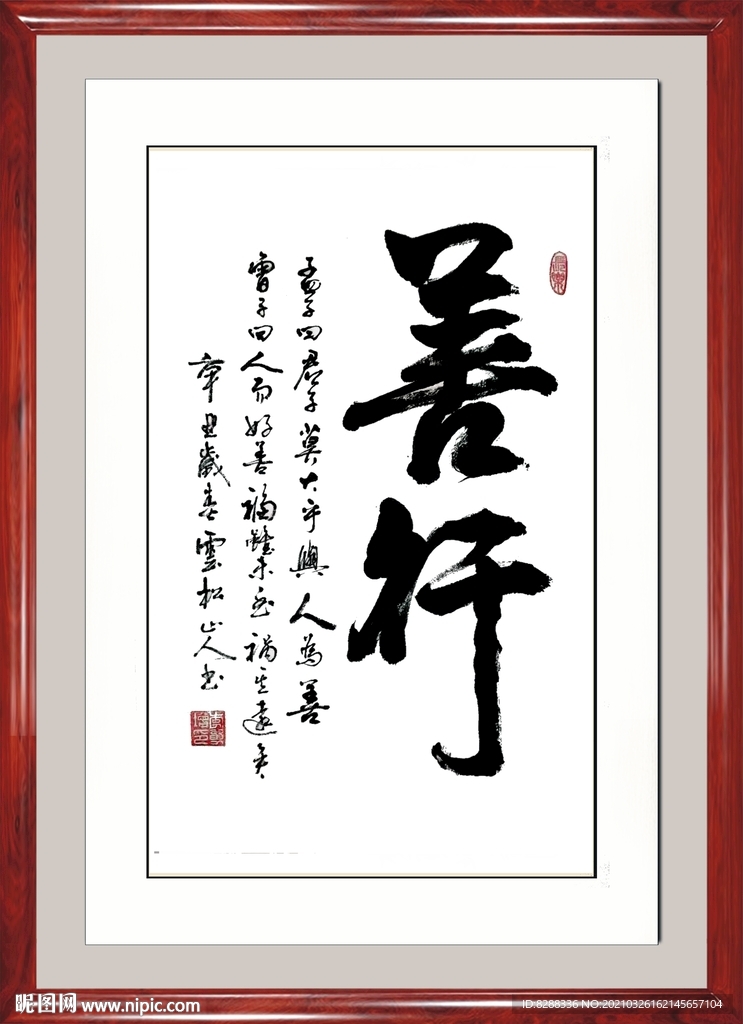 善行
孟子曰君子莫大乎與人為善
曾子曰人而好善福雖未至禍其遠矣
辛丑歲春雲松山人书
昵图网 www.nipic.com
ID:8288336 NO:20210326162145657104